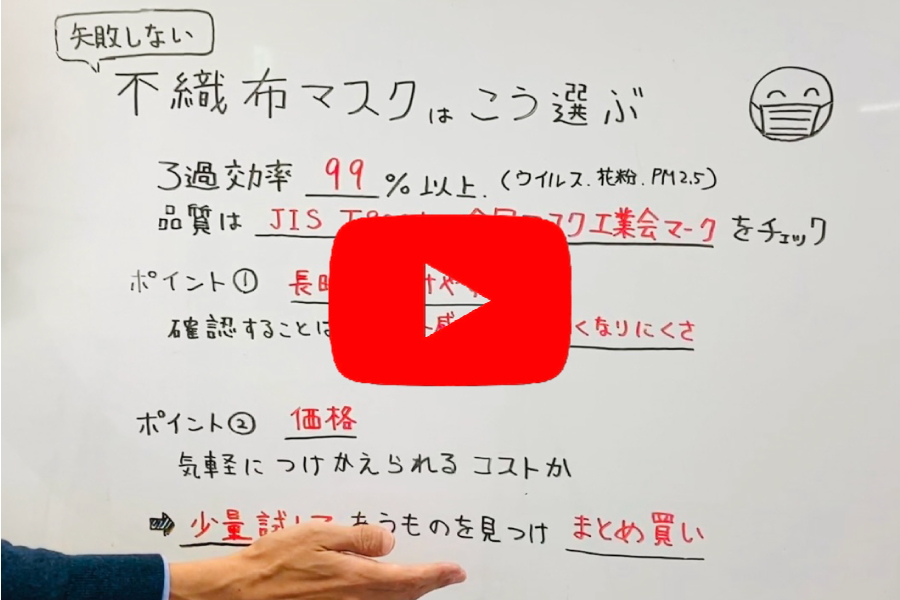 失敗しない
不織布マスクはこう選ぶ
3過効率 99%以上.(ウイルス.花粉.PM2.5)
品質は JIS マスク工業会マークをチェック
ポイント① 長
確認することは くなりにくさ
ポイント② 価格
気軽につけかえられるコストか
⇒ 少量試して あうものを見つけ まとめ買い